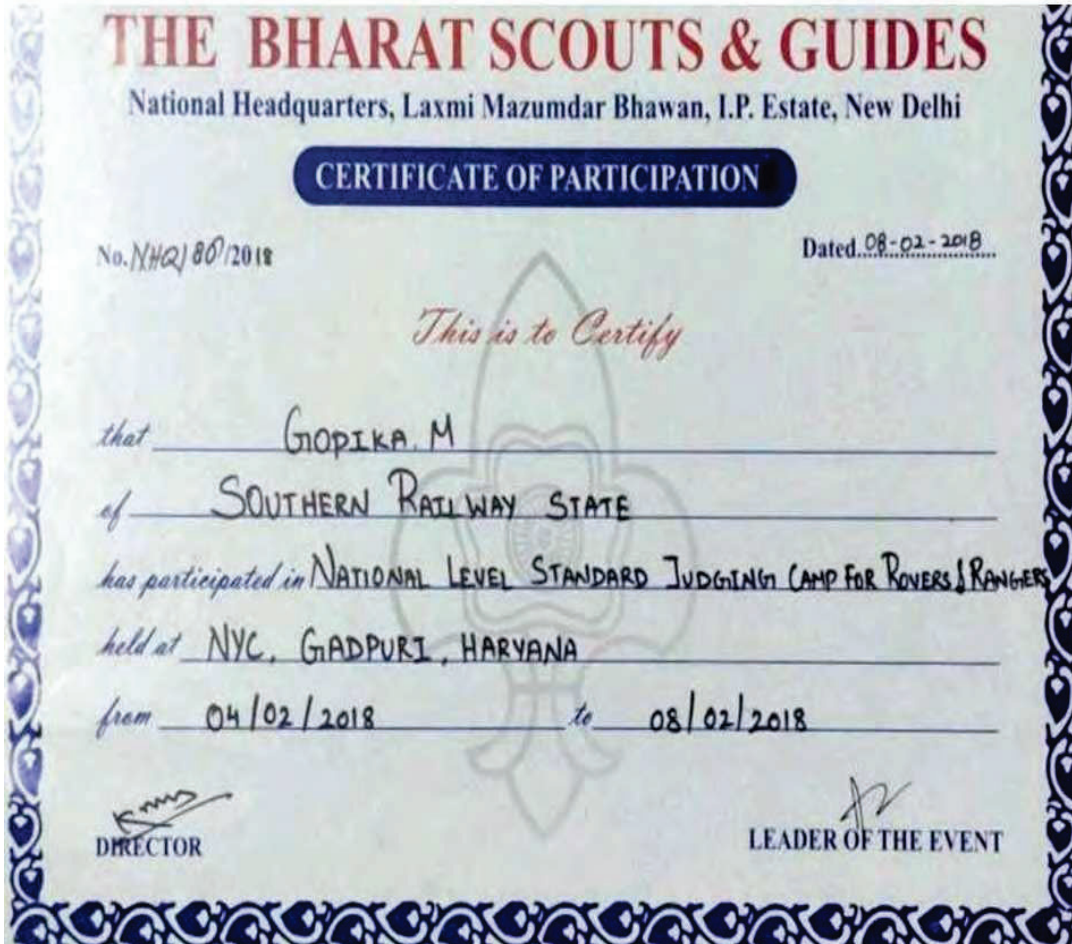 THE BHARAT SCOUTS & GUIDES
National Headquarters, Laxmi Mazumdar Bhawan, I.P. Estate, New Delhi
CERTIFICATE OF PARTICIPATION
No. NHQ/80/2018 Dated 08-02-2018
This is to Certify
that GOPIKA. M
of SOUTHERN RAILWAY STATE
has participated in NATIONAL LEVEL STANDARD JUDGING CAMP FOR ROVERS & RANGERS
held at NYC, GADPURI, HARYANA
from 04/02/2018 to 08/02/2018
DIRECTOR LEADER OF THE EVENT